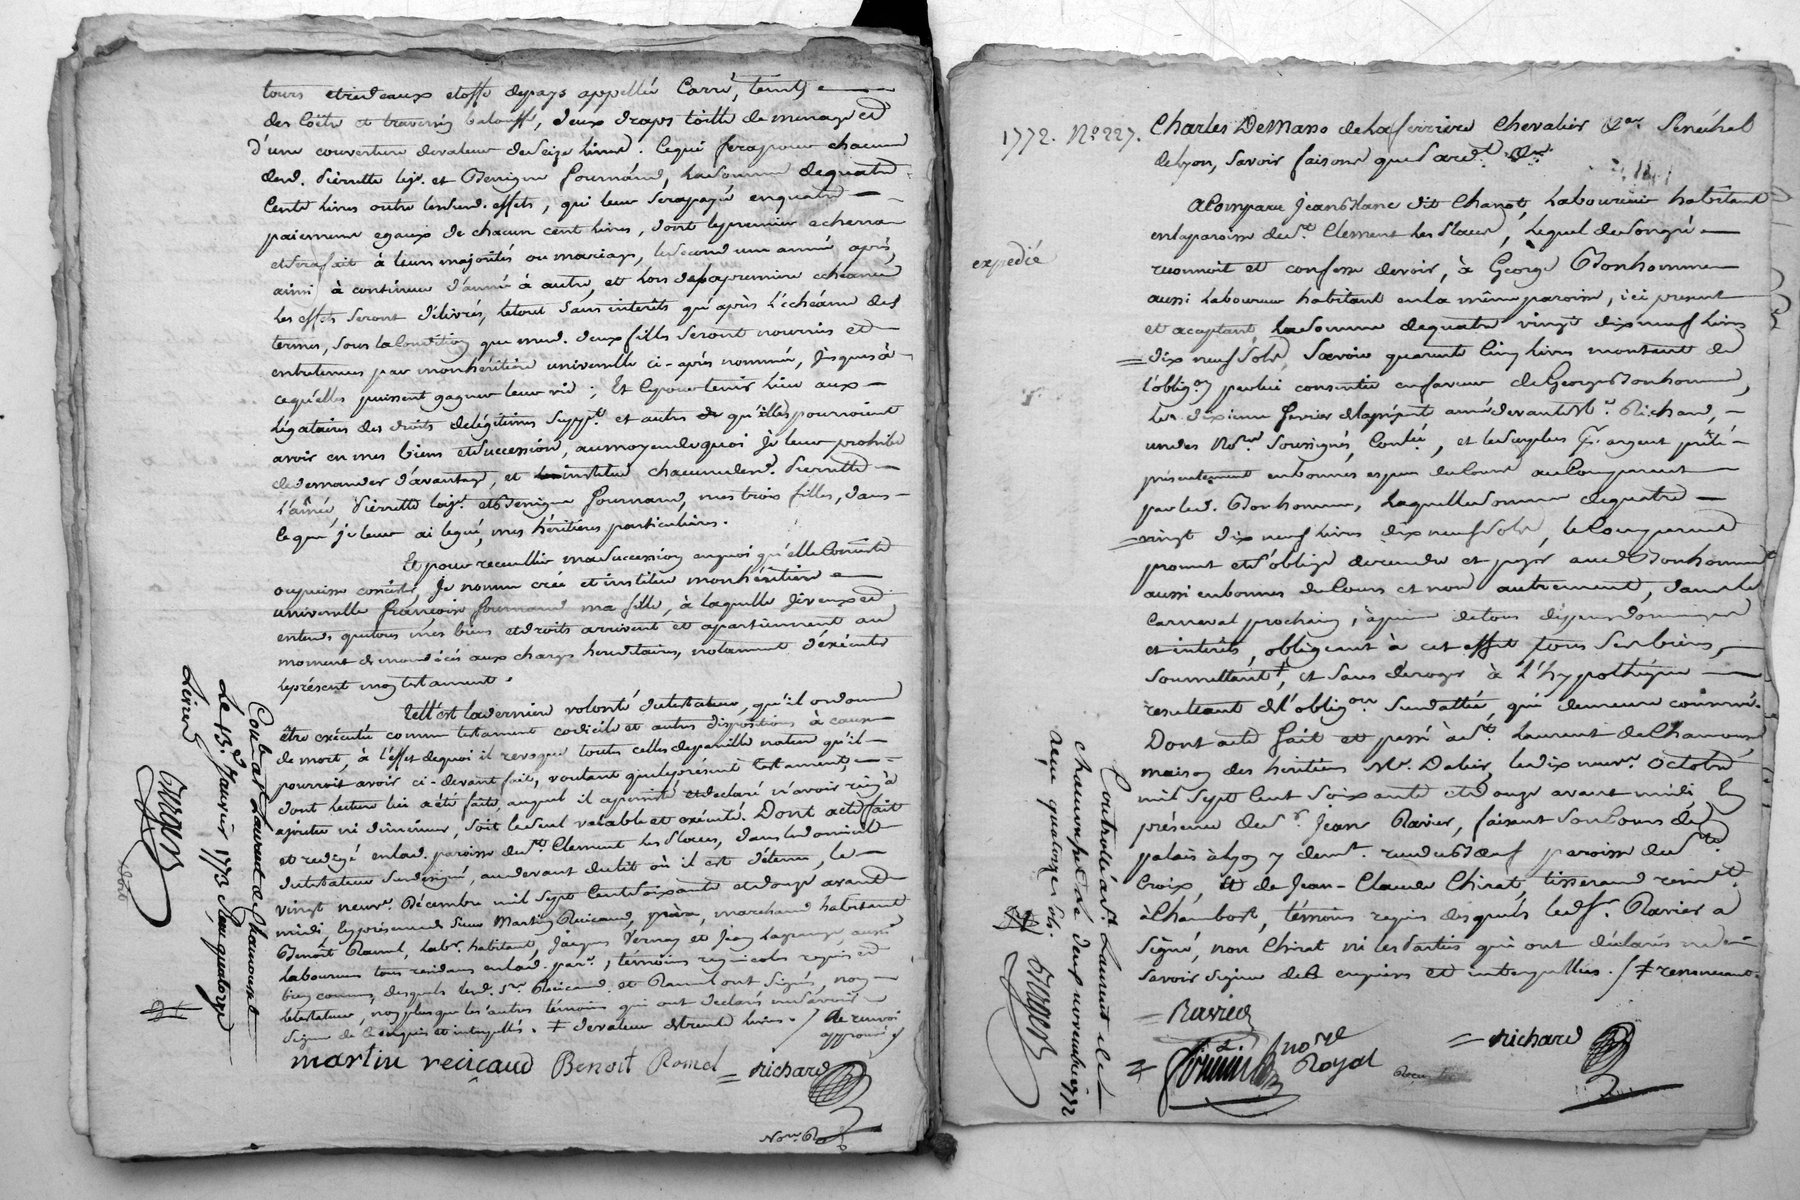 tours et rideaux etoffe depays appellée Carré, teint
des Coëtte et traversin, deux draps toille de menage et
d'une couverture devaleur de seize livres. Cequi fera pour chacune
desd. Pierrette et Benigne Journand, la somme de quatre
Cents livres outre lesusd. effets, qui leur sera payé en quatre
paiements egaux de chacun cent livres, dont le premier echerra
et sera fait à leurs majorités ou mariage, le second une année après,
ainsi à continuer d'année à autre, et lors de la premiere echeance
les effets seront délivrés, letout sans interêts qu'après l'échéance des
termes, sous la Condition que mesd. deux filles seront nourries et
entretenues par mon héritière universelle ci-après nommée, jusques à
cequ'elles puissent gagner leur vie; Et ce pour tenir lieu aux
légataires des droits de légitimes supp.t et autres qu'elles pourroient
avoir en mes biens et succession, au moyen de quoi je leur prohibe
de demander d'avantage, et institue chacune desd. Pierrette
l'aînée, Pierrette et Benigne Journand, mes trois filles, dans
ce que je leur ai légué, mes héritières particulières.
Et pour recueillir ma succession en quoi qu'elle Consiste
ou puisse consister, Je nomme crée et institue mon héritière
universelle françoise Journand ma fille, à laquelle je veux et
entends que tous mes biens et droits arrivent et apartiennent au
moment de mon décès aux charges hereditaires, notamment d'exécuter
le présent mon testament.
Telle est la derniere volonté du testateur, qu'il ordonne
être exécutée comme testament codicile et autres dispositions à cause
de mort, à l'effet de quoi il revoque toutes celles de pareille nature qu'il
pourroit avoir ci-devant fait, voulant que le présent testament,
dont lecture lui a été faite, auquel il a persisté et declaré n'avoir rien à
ajouter ni diminuer, soit le seul valable et exécuté. Dont acte fait
et redigé en lad. paroisse de S.t Clement les Places, dans le domicile
du testateur susdesigné, au devant du lit où il est détenu, le
vingt neuv.e Décembre mil sept Cent soixante et douze avant
midi, En présence de Sieur Martin Recicaud, père, marchand habitant
Benoît Ramel, lab.r habitant, Jacques Vernay et Jean Lagrange, aussi
laboureurs tous residans en lad. par.e, témoins requis et
bien connus, desquels led. S.r Recicaud et Ramel ont signés, non
le testateur, non plus que les autres témoins qui ont declaré ne savoir
signer de ce enquis et interpellés. ≠ de valeur de trente livres. / Le renvoi
approuvé /
martin recicaud Benoit Romel = Richard
Not. R.
Con. à S.t Laurent de Chamousset
Le 13. Janvier 1773 Reçu quatorze
Livres
1772. N.o 227.
Charles DeMaso de La ferriere Chevalier &.a Sénéchal
de Lyon, savoir faisons que &.a
expedié
A Comparu Jean Blanc dit Chanot, laboureur habitant
en la paroisse de S.t Clement les Places, lequel de son gré
reconnoit et confesse devoir, à George Bonhomme
aussi laboureur habitant en la même paroisse, ici present
et acceptant, la somme de quatre vingt dix neuf livres
dix neuf sols, Savoir quarente Cinq livres montant de
l'oblig.on par lui consentie en faveur de George Bonhomme,
le dixieme fevrier de la présente année devant M.e Richard,
un des No.res soussignés, Contr.lée, et le surplus p.r argent prêté
présentement en bonnes especes du Cours au Comparant
par led. Bonhomme, laquelle somme de quatre
vingt dix neuf livres dix neuf sols, le Comparant
promet et s'oblige de rendre et payer aud. Bonhomme
aussi en bonnes du Cours et non autrement, dans le
Carnaval prochain, à peine de tous dépens dommages
et interêts, obligeant à cet effet tous ses biens,
soumettant, et sans deroger à l'hypothèque
resultant de l'oblig.on susdattée, qui demeure
Dont acte fait et passé à S.t Laurent de Chamousset
maison des heritiers M.e Dalier, le dix neuv.e Octobre
mil sept Cent soixante et douze avant midi En
présence de S.r Jean Ravier, faisant son Cours de
palais à Lyon y dem.t rue du Bœuf paroisse de S.te
Croix, Et de Jean-Claude Chirat, tisserand
à Chambost, témoins requis desquels led. S.r Ravier a
signé, non Chirat ni les Parties qui ont déclarés ne
savoir signer de ce enquis et interpellés. / ≠ renonceant.
= Ravier
No.re Royal
= Richard
Controllé à S.t Laurent de
Chamousset le deux novembre 1772
reçu quatorze sols.